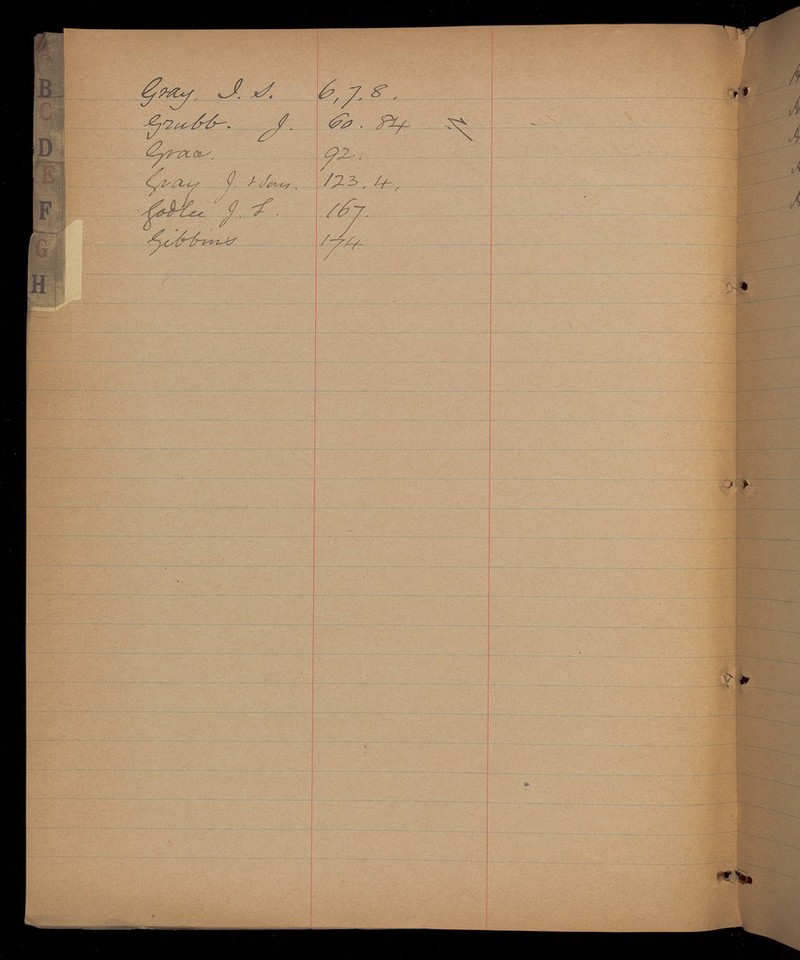 B
C
D
E
F
G
H
Gray. J. S. 6, 7. 8.
Grubb. J. 60. 84
Grace. 92.
Gray J. & Sons. 123. 4.
Godlee J. L. 167.
Gibbins 174